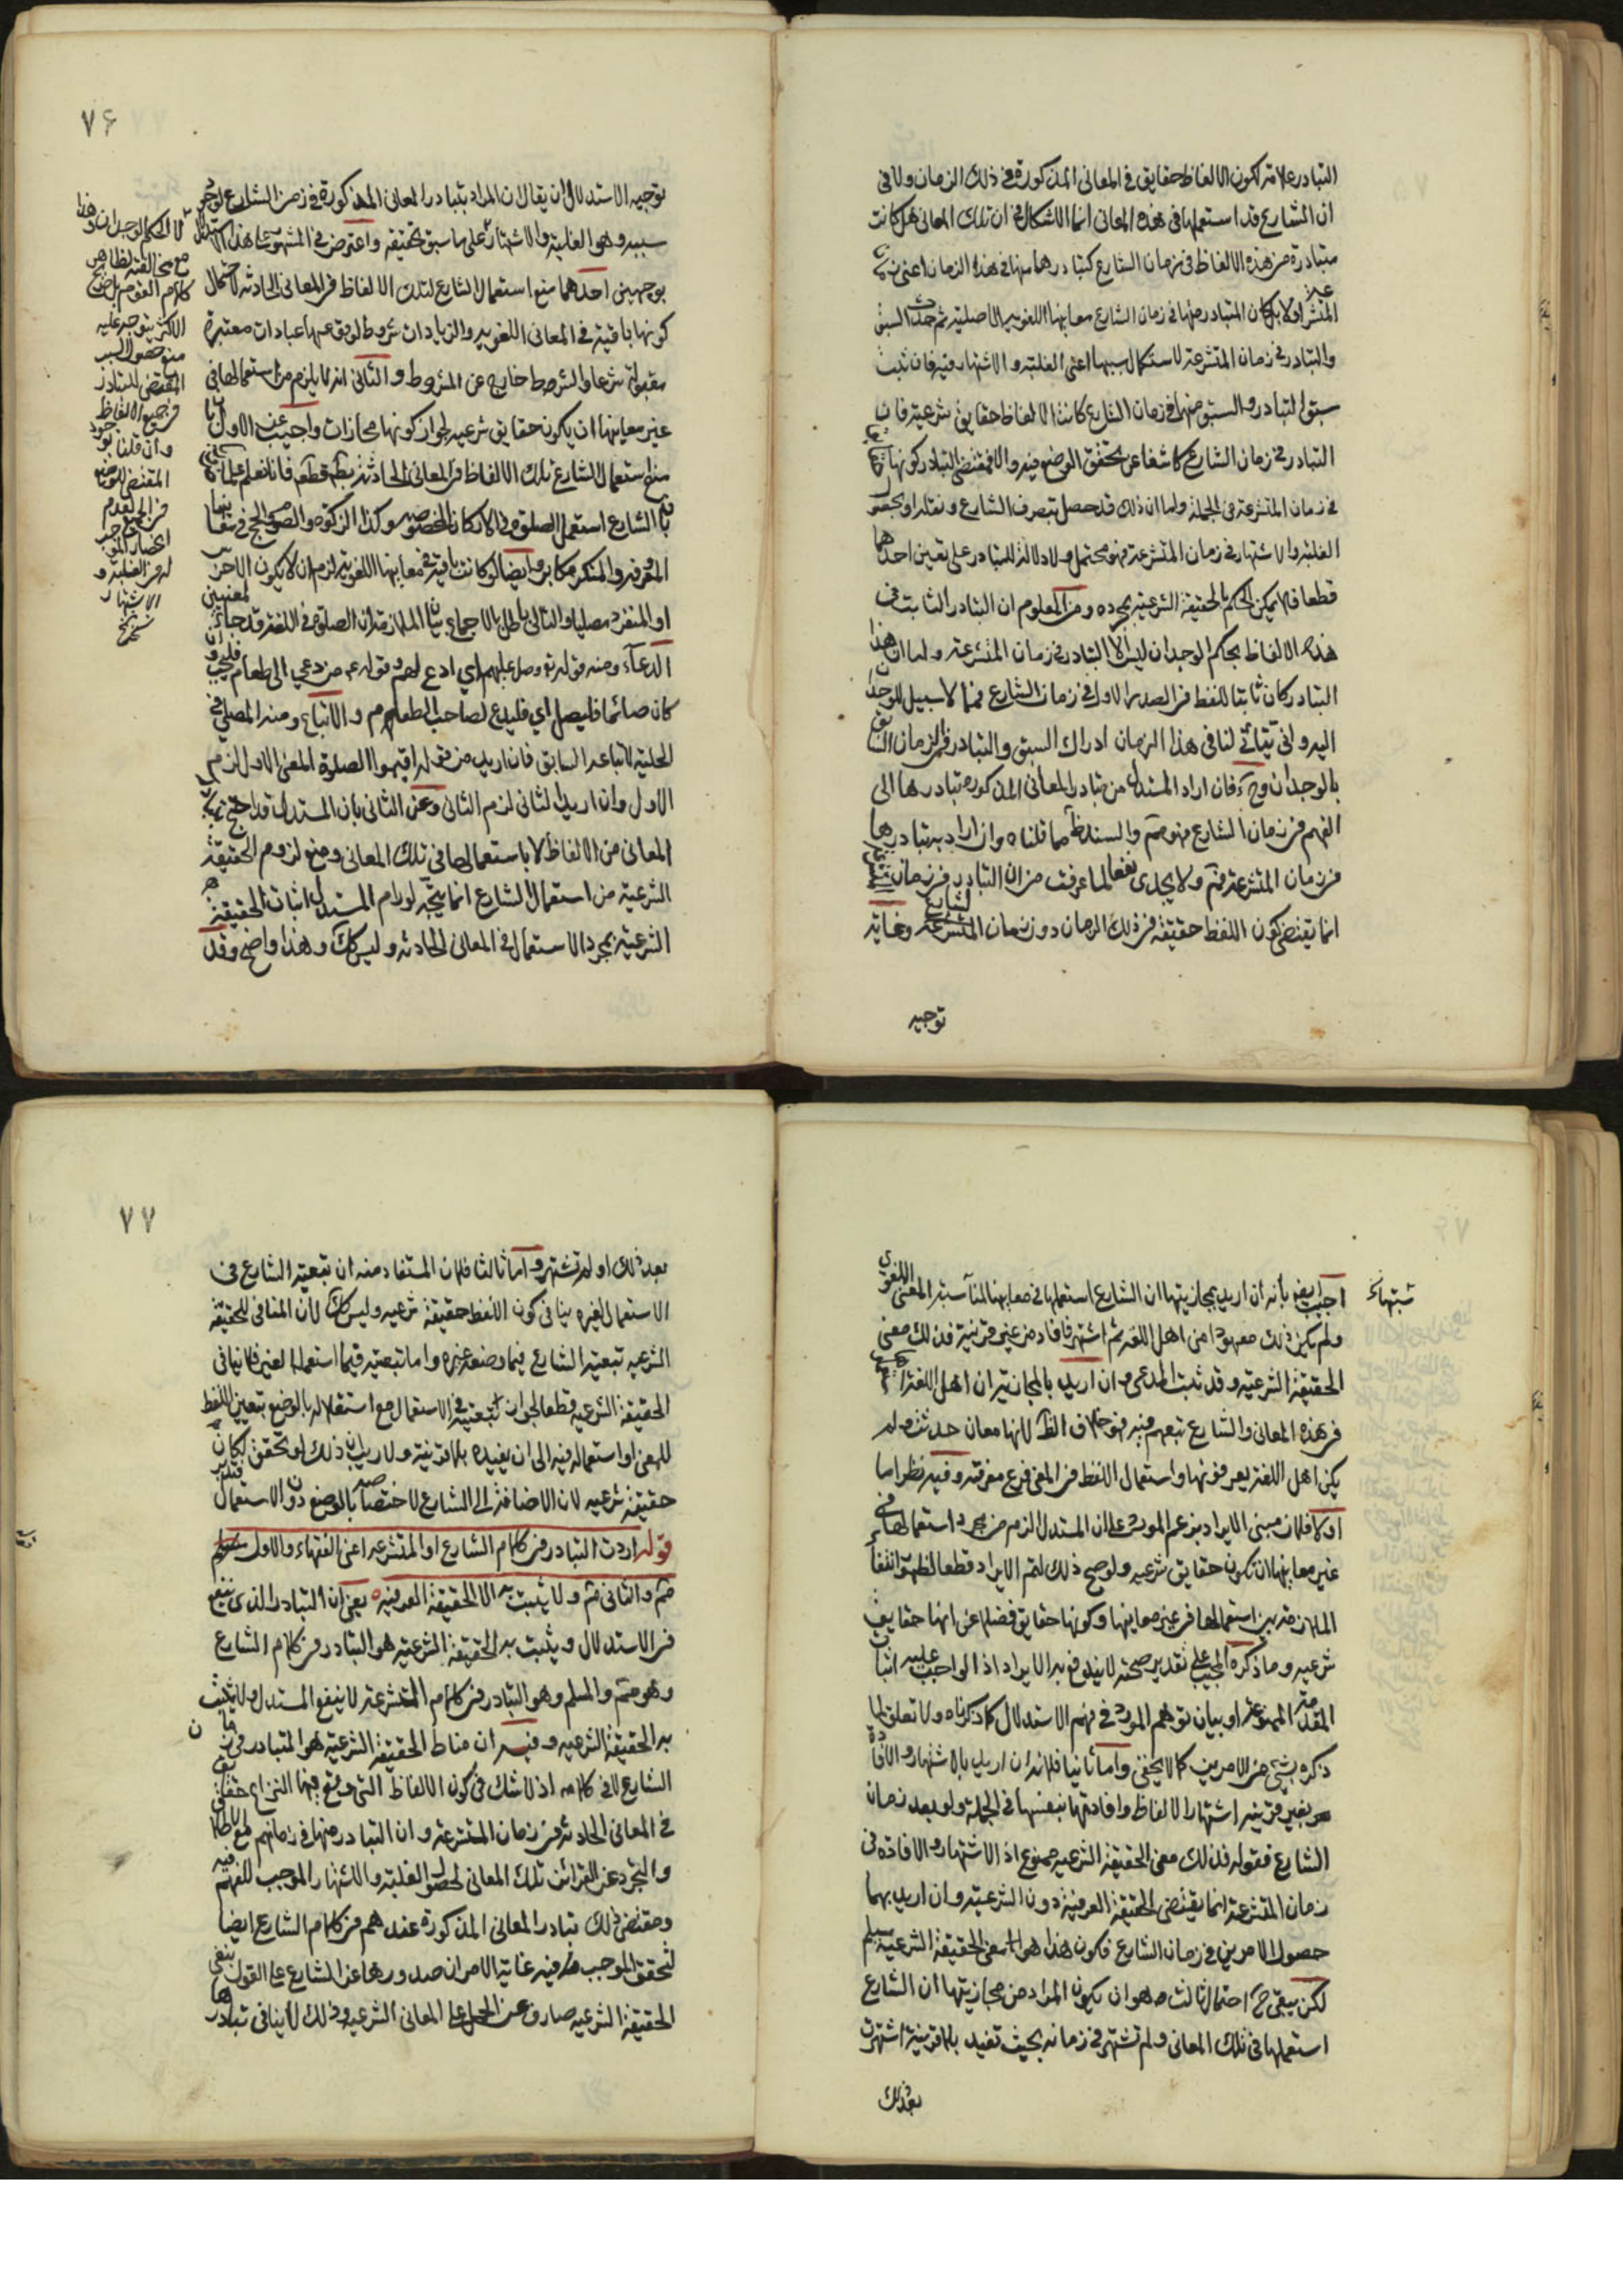 التبادر علامة لكون الالفاظ حقايق في المعاني المذكورة في ذلك الزمان ولا في
ان الشارع قد استعملها في هذه المعاني انما الاشكال في ان تلك المعاني هل كانت
متبادرة من هذه الالفاظ في زمان الشارع كتبادرها منها في هذا الزمان اعني زمان
المتشرعة اولا بل كان المتبادر منها في زمان الشارع معانيها اللغوية الاصلية ثم حدث السبق
والتبادر في زمان المتشرعة لاستكمال سببها اعني الغلبة والاشتهار فيه فان ثبت
سبق التبادر والسبق منها في زمان الشارع كانت الالفاظ حقايق شرعية فان
التبادر في زمان الشارع كاشفا عن تحقق الوضع فيه والا فمقتضى التبادر كونها حقايق
في زمان المتشرعة في الجملة واما ان ذلك قد حصل بتصرف الشارع ونقله او بتحقق
الغلبة والاشتهار في زمان المتشرعة فهو محتمل ولا دلالة للتبادر على تعين احدهما
قطعا فلا يمكن الحكم بالحقيقة الشرعية بمجرده ومن المعلوم ان التبادر الثابت في
هذه الالفاظ بحكم الوجدان ليس الا التبادر في زمان المتشرعة واما ان هذا
التبادر كان ثابتا للفظ في الصدر الاول في زمان الشارع فمما لا سبيل للوجدان
اليه وانى يتأتى لنا في هذا الزمان ادراك السبق والتبادر في الزمان السابق
بالوجدان وح فان اراد المستدل من تبادر المعاني المذكورة تبادرها الى
الفهم في زمان الشارع فهو مم والسند ظ مما قلناه وان اراد به تبادرها
في زمان المتشرعة فمم ولا يجدي نفعا لما عرفت من ان التبادر في زمان
انما يقتضي كون اللفظ حقيقة في ذلك الزمان دون زمان الشارع وغاية
توجيه
٧۶
توجيه الاستدلال ان يقال ان المراد بتبادر المعاني المذكورة في زمن الشارع لوجود
سببه وهو الغلبة والاشتهار على ما سبق تحقيقه واعترض في المشهور على هذا الاستدلال
بوجهين احدهما منع استعمال الشارع لتلك الالفاظ في المعاني الحادثة لاحتمال
كونها باقية في المعاني اللغوية والزيادات شروط لوقوعها عبادات معتبرة
مقبولة شرعا والشرط خارج عن المشروط والثاني انه لا يلزم من استعمالها في
غير معانيها ان يكون حقايق شرعية لجواز كونها مجازات واجيب عن الاول بان
منع استعمال الشارع تلك الالفاظ في المعاني الحادثة قطعا فانا نعلم علما
بان الشارع استعمل الصلوة في الاركان المخصوصة وكذا الزكوة والصوم والحج في معانيها
المعروفة والمنكر مكابر وايضا لو كانت باقية في معانيها اللغوية لزم ان لا يكون الاخرس
او المنفرد مصليا والتالي باطل بالاجماع بيان الملازمة ان الصلوة في اللغة قد جاءت لمعنيين
الدعاء ومنه قوله تع وصل عليهم اي ادع لهم وقوله ع من دعي الى طعام فليجب وان
كان صائما فليصل اي فليدع لصاحب الطعام والاتباع ومنه المصلي في
الحلبة لاتباعه السابق فان اريد من قوله اقيموا الصلوة المعنى الاول لزم
الاول وان اريد الثاني لزم الثاني وعن الثاني بان المستدل قد احتج بتبادر
المعاني من الالفاظ لا باستعمالها في تلك المعاني ومنع لزوم الحقيقة
الشرعية من استعمال الشارع انما يتجه لو رام المستدل اثبات الحقيقة
الشرعية بمجرد الاستعمال في المعاني الحادثة وليس كك وهذا واضح وقد
مع مخالفته لظاهر
كلام القوم بل صريح
الاكثر يتوجه عليه
منع حصول السبب
المقتضي للتبادر
في جميع الالفاظ
وان قلنا بوجود
المقتضي للوضع
في الجميع لعدم
انحصار الموجب
له في الغلبة و
الاشتهار
اجيب ايضا بأنه ان اريد بمجازيتها ان الشارع استعملها في معانيها لمناسبة المعنى اللغوي
ولم يكن ذلك معهودا من اهل اللغة ثم اشتهر فافاد من غير قرينة فذلك معنى
الحقيقة الشرعية وقد ثبت المدعى وان اريد بالمجازية ان اهل اللغة استعملوها
في هذه المعاني والشارع تبعهم فيه فهو خلاف الظ لانها معان حدثت ولم
يكن اهل اللغة يعرفونها واستعمال اللفظ في المعنى فرع معرفته وفيه نظر اما
اولا فلان مبنى الايراد بزعم المورد على ان المستدل الزم من مجرد استعمالها في
غير معانيها ان تكون حقايق شرعية ولو صح ذلك لتم الايراد قطعا لظهور انتفاء
الملازمة بين استعمالها في غير معانيها وكونها حقايق فضلا عن انها حقايق
شرعية وما ذكره المجيب على تقدير صحته لا يندفع به الايراد اذ الواجب عليه اثبات
المقدمة الممنوعة او بيان توهم المورد في فهم الاستدلال كما ذكرناه ولا تعلق لما
ذكره بشيء من الامرين كما لا يخفى واما ثانيا فلانه ان اريد بالاشتهار والافادة
بغير قرينة اشتهار الالفاظ وافادتها بنفسها في الجملة ولو بعد زمان
الشارع فقوله فذلك معنى الحقيقة الشرعية ممنوع اذ الاشتهار والافادة في
زمان المتشرعة انما يقتضي الحقيقة العرفية دون الشرعية وان اريد بهما
حصول الامرين في زمان الشارع فكون هذا هو معنى الحقيقة الشرعية مسلم
لكن يبقى ح احتمال ثالث وهو ان يكون المراد من مجازيتها ان الشارع
استعملها في تلك المعاني ولم تشتهر في زمانه بحيث تفيد بلا قرينة اشتهرت
بعد ذلك
٧٧
بعد ذلك او لم تشتهر واما ثالثا فلان المستفاد منه ان تبعية الشارع في
الاستعمال لغيره ينافي كون اللفظ حقيقة شرعية وليس كك لان المنافي للحقيقة
الشرعية تبعية الشارع فيما وضعه غيره واما تبعيته فيما استعمله الغير فلا ينافي
الحقيقة الشرعية قطعا لجواز تبعيته في الاستعمال مع استقلاله بالوضع بتعيين اللفظ
للمعنى او استعماله فيه الى ان يفيده بلا قرينة ولا ريب ان ذلك لو تحقق لكان
حقيقة شرعية لان الاضافة الى الشارع لاختصاصه بالوضع دون الاستعمال
قوله اردت التبادر في كلام الشارع او المتشرعة اعني الفقهاء والاول
مم والثاني مم ولا يثبت به الا الحقيقة العرفية يعني ان التبادر الذي ينفع
في الاستدلال ويثبت به الحقيقة الشرعية هو التبادر في كلام الشارع
وهو مم والمسلم وهو التبادر في كلام المتشرعة لا ينفع المستدل ولا يثبت
به الحقيقة الشرعية وفيه ان مناط الحقيقة الشرعية هو المتبادر في زمان
الشارع لا في كلامه اذ لا شك في كون الالفاظ التي وقع فيها النزاع حقايق
في المعاني الحادثة في زمان المتشرعة وان التبادر منها في زمانهم مع الاطلاق
والتجرد عن القرائن تلك المعاني لحصول الغلبة والاشتهار الموجب للفهم فيه
ومقتضى ذلك تبادر المعاني المذكورة عندهم في كلام الشارع ايضا
لتحقق الموجب فيه غاية الامر ان صدورها عن الشارع على القول بنفي
الحقيقة الشرعية صارف عن الحمل على المعاني الشرعية وذلك لا ينافي تبادرها